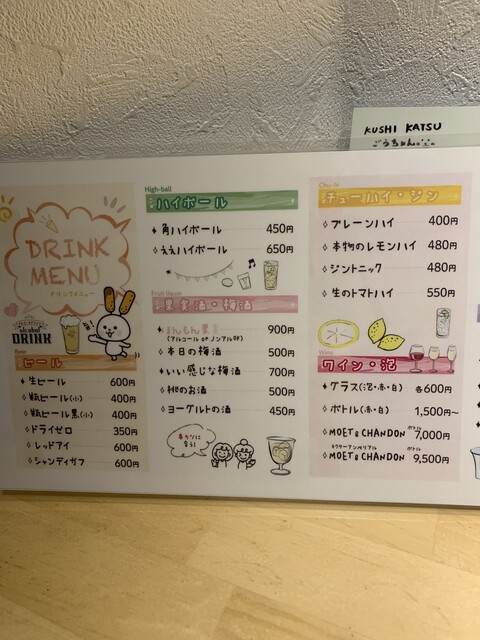 KUSHI KATSU
ごうちゃん
DRINK
MENU
ドリンクメニュー
alcohol
DRINK
Beer
ビール
生ビール 600円
瓶ビール(小) 400円
瓶ビール黒(小) 400円
ドライゼロ 350円
レッドアイ 600円
シャンディガフ 600円
High-ball
ハイボール
角ハイボール 450円
ええハイボール 650円
Fruit liquor
果実酒・梅酒
ほんもん果実 900円
(アルコール or ノンアルOK)
本日の梅酒 500円
いい感じな梅酒 700円
桃のお酒 500円
ヨーグルトの酒 450円
串カツに
合う!
Chu-hi
チューハイ・ジン
プレーンハイ 400円
本物のレモンハイ 480円
ジントニック 480円
生のトマトハイ 550円
Wine
ワイン・泡
グラス(泡・赤・白) 各600円
ボトル(赤・白) 1,500円~
MOET & CHANDON ボトル 7,000円
ネクターアンペリアル
MOET & CHANDON ボトル 9,500円